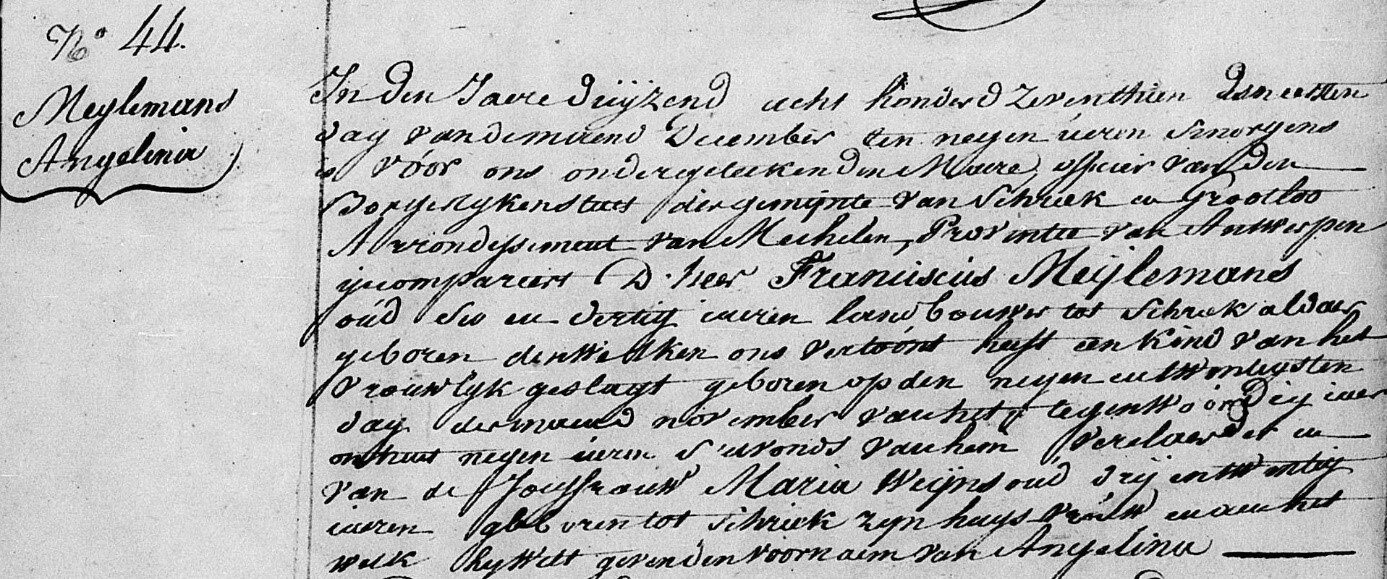 N.° 44.
Meylemans
Angelina
In den Jaere duyzend acht honderd zeventhien den eersten
dag van de maend December ten negen ueren smorgens
is vóor ons ondergeteekenden Maere, officier van den
Borgerlykenstaet der gemijnte van Schriek en Grootloo
Arrondissement van Mechelen, Provintie van Antwerpen
gecompareert D'heer Franciscus Meijlemans
oúd en dertig jaeren landbouwer tot Schriek aldaer
geboren denwelken ons vertoónt heeft een kind van het
vrouwlyk geslagt geboren op den negen en twentigsten
dag der maend november van het tegenwóórdig jaer
ontrent negen ueren s'avonds van hem verclaerder en
van de Jouffrouw Maria Weijns oud drij en twentig
jaeren geboren tot Schriek zyn huys vrouw en aen het
welk hy wilt geven den voornaem van Angelina